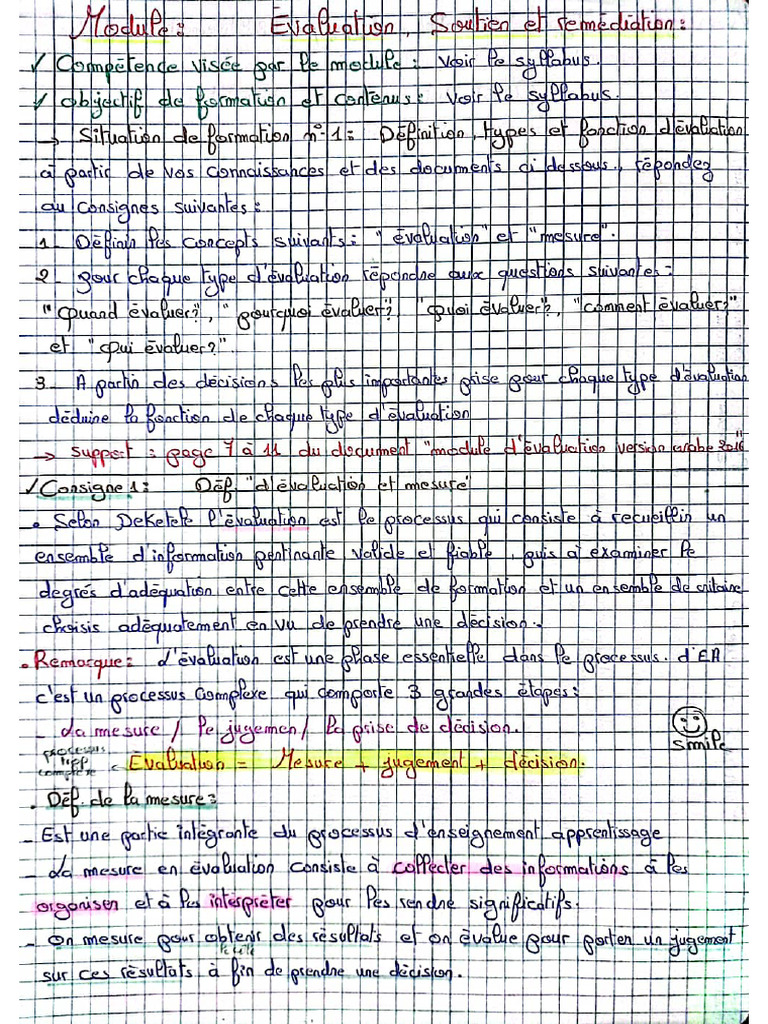 Module: Évaluation, Soutien et remédiation:
✓ Compétence visée par le module: voir le syllabus.
✓ objectif de formation et contenus: voir le syllabus.
→ Situation de formation n°1: Définition, types et fonction d'évaluation
à partir de vos connaissances et des documents ci dessous, répondez
au consignes suivantes:
1_ Définir les concepts suivants: "évaluation" et "mesure".
2_ pour chaque type d'évaluation répondre aux questions suivantes:
"Quand évaluer?", "pourquoi évaluer?", "quoi évaluer?", "comment évaluer?"
et "Qui évaluer?".
3_ A partir des décisions les plus importantes prise pour chaque type d'évaluation
déduire la fonction de chaque type d'évaluation
→ support: page 7 à 11 du document "module d'évaluation version arabe 2016"
✓ Consigne 1: Déf "d'évaluation et mesure"
• Selon DeKetele l'évaluation est le processus qui consiste à recueillir un
ensemble d'information pertinante valide et fiable, puis à examiner le
degrés d'adéquation entre cette ensemble de formation et un ensemble de critaire
choisis adéquatement en vu de prendre une décision.
• Remarque: L'évaluation est une phase essentielle dans le processus d'EA
c'est un processus complexe qui comporte 3 grandes étapes:
- La mesure / le jugemen / la prise de décision.
smile
processus
complexe
• Évaluation = Mesure + jugement + décision.
• Déf. de la mesure:
- Est une partie intégrante du processus d'enseignement apprentissage
- La mesure en évaluation consiste à collecter des informations à les
organiser et à les interpréter pour les rendre significatifs.
- On mesure pour obtenir des résultats et on évalue pour porter un jugement
sur ces résultats à fin de prendre une décision.